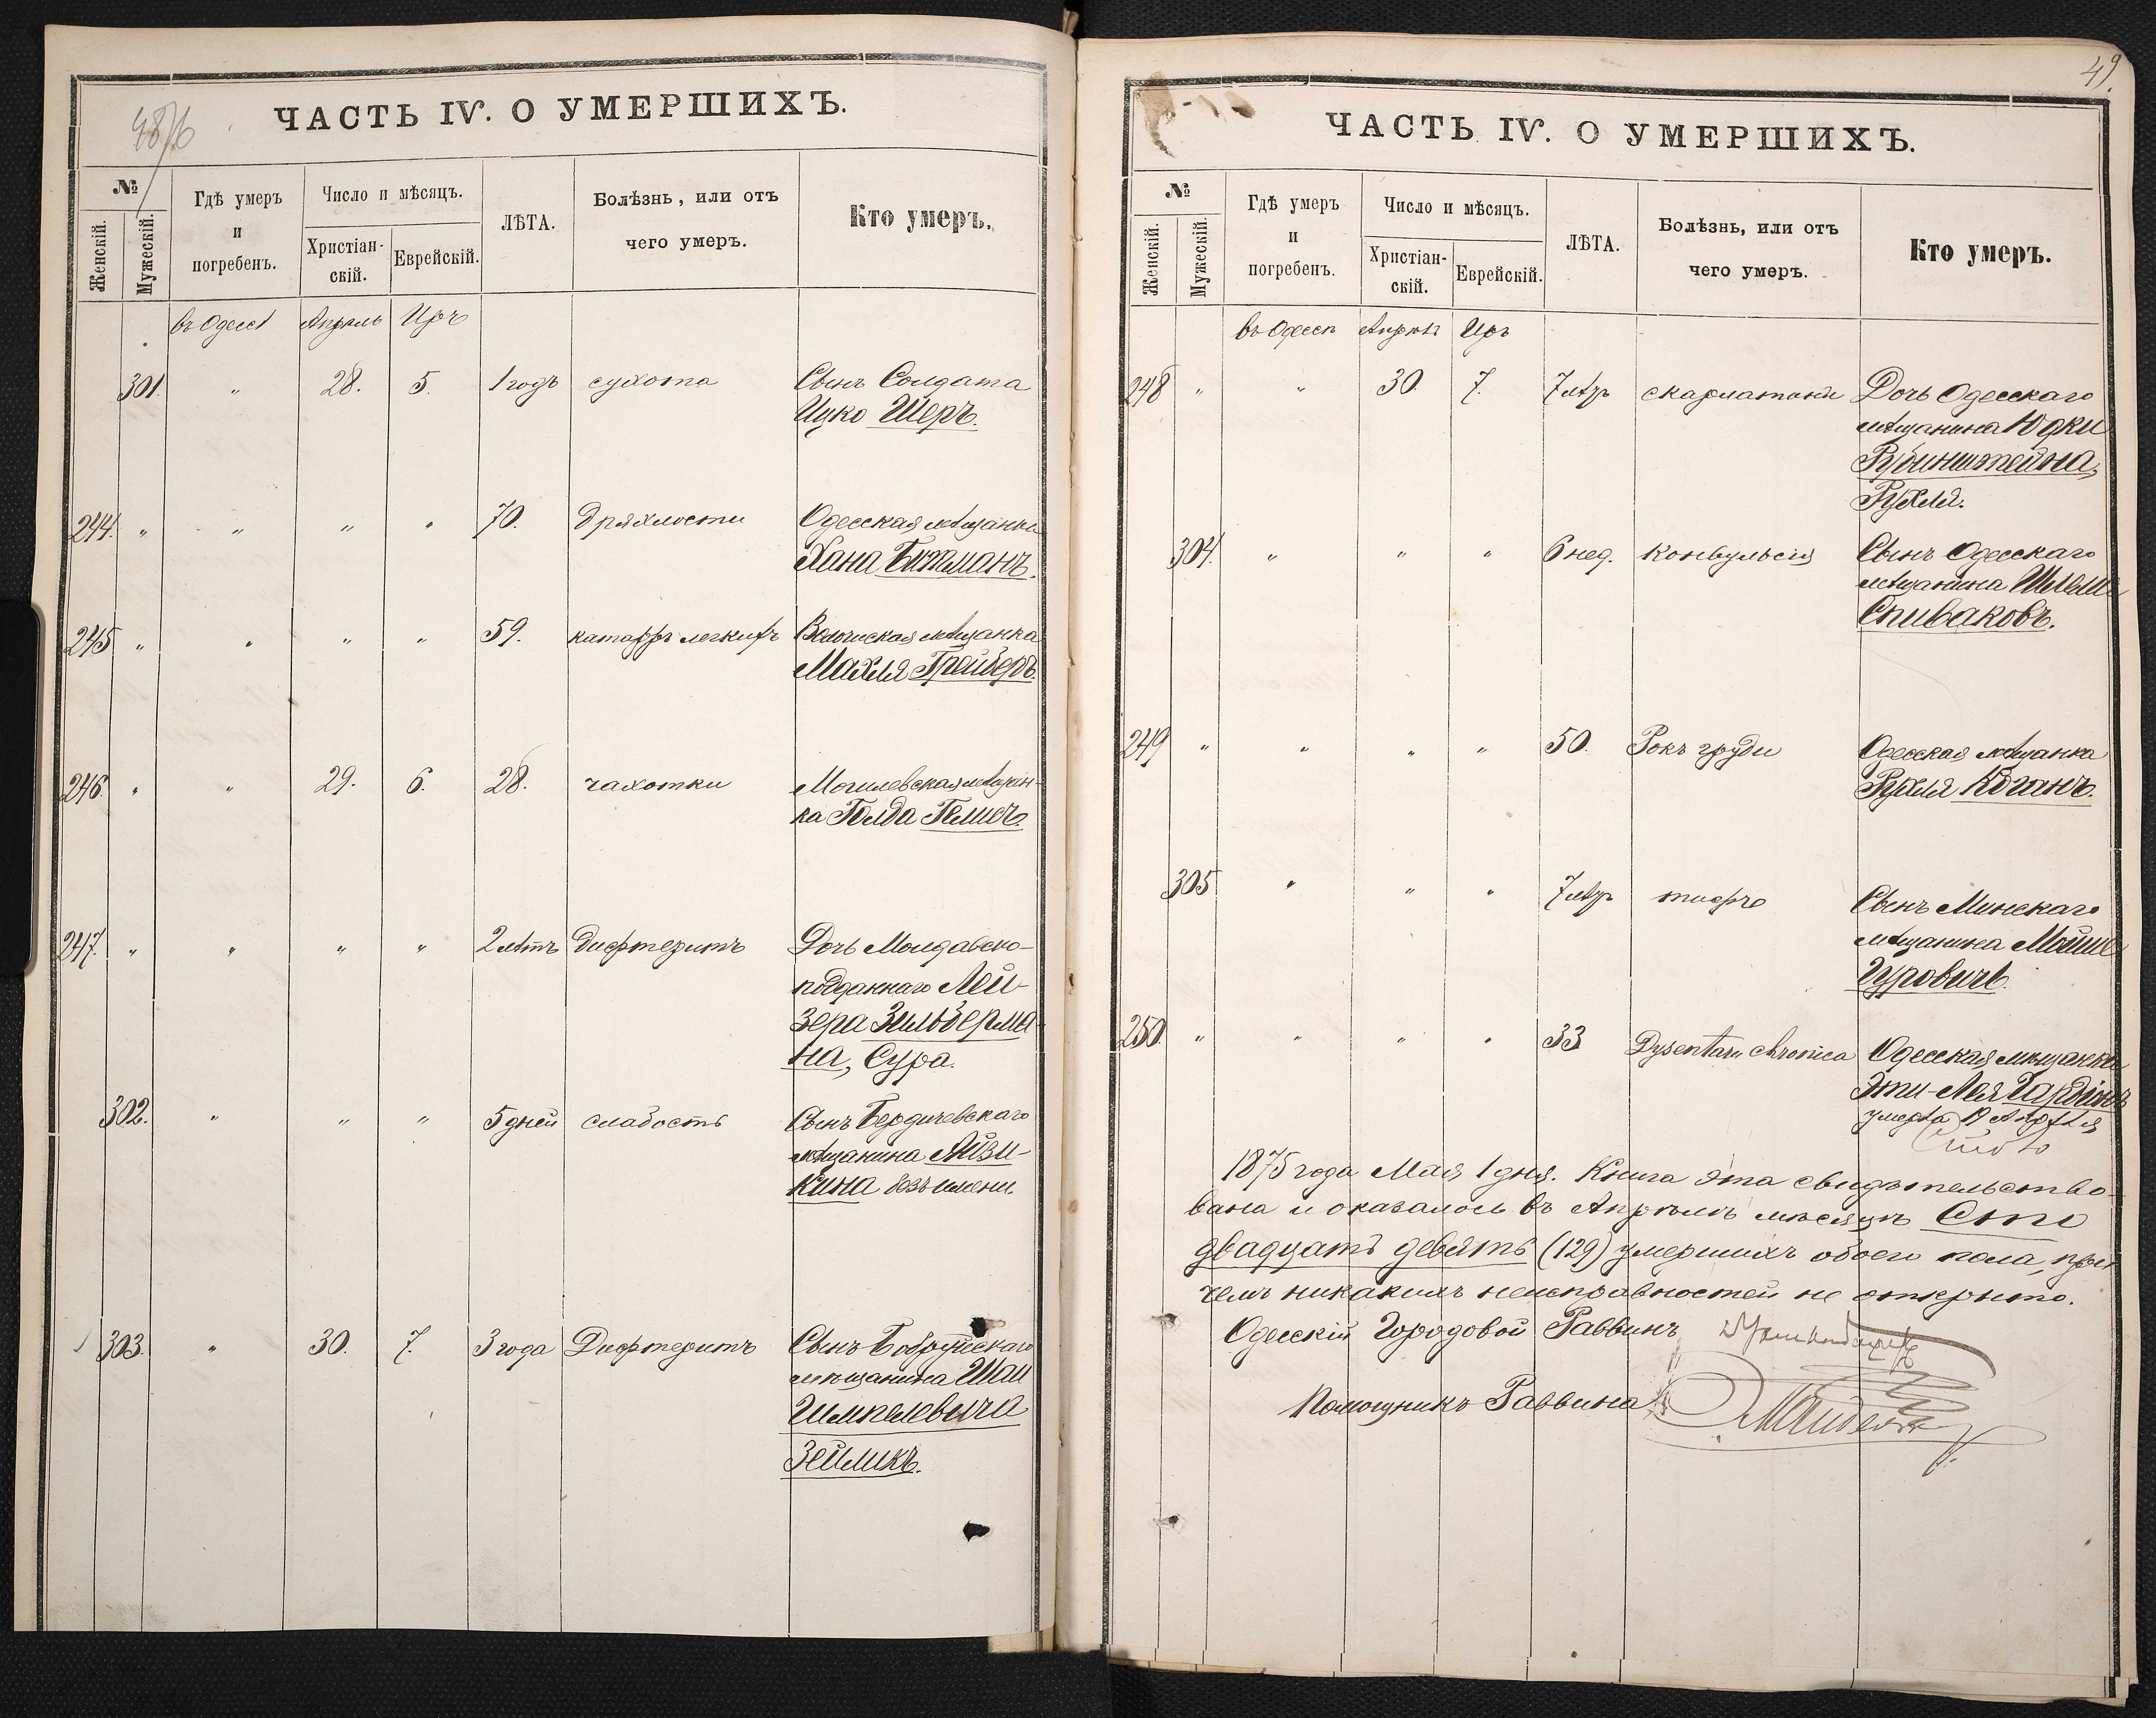 ЧАСТЬ IV. О УМЕРШИХЪ.
№
Женскій.
Мужескій.
Гдѣ умеръ
и
погребенъ.
Число и мѣсяцъ.
Христіан-
скій.
Еврейскій.
ЛѢТА.
Болѣзнь, или отъ
чего умеръ.
Кто умеръ.
въ Одессѣ Апрѣль Иръ
301. " 28. 5. 1 годъ сухота Сынъ Солдата
Ицко Шеръ.
244. " " " " 70. дряхлости Одесская мѣщанка
Хана
245 " " " " 59. катарръ легкихъ мѣщанка
Махля Грейберъ.
246. " " 29. 6. 28. чахотки Могилевская мѣщан-
ка Голда
247. " " " " 2 лѣтъ дифтеритъ Дочь Молдавско-
подданнаго Лей-
зера Зильберма-
на, Сура.
302. " " " 5 дней слабость Сынъ Бердичевскаго
мѣщанина Айзи-
кина безъ имени.
303. " 30. 7. 3 года Дифтеритъ Сынъ Бобруйскаго
мѣщанина
Шмулевича
Зейликъ.
49.
ЧАСТЬ IV. О УМЕРШИХЪ.
№
Женскій.
Мужескій.
Гдѣ умеръ
и
погребенъ.
Число и мѣсяцъ.
Христіан-
скій.
Еврейскій.
ЛѢТА.
Болѣзнь, или отъ
чего умеръ.
Кто умеръ.
въ Одессѣ Апрѣль Иръ
248 " " 30. 7. 7 лѣтъ скарлатины Дочь Одесскаго
мѣщанина Юдки
Рубинштейна,
Рухля.
304. " " " 6 нед. конвульсія Сынъ Одесскаго
мѣщанина
Спиваковъ.
249 " " " " 50. Ракъ груди Одесская мѣщанка
Рухля Коганъ.
305 " " " 7 лѣтъ тифъ Сынъ Минскаго
мѣщанина Мойше
Гуровичъ.
250. " " " " 33 Dysentaria chronica Одесская мѣщанка
Эти-Лея
умерла Апрѣля
1875 года Мая 1 дня. Книга эта свидѣтельство-
вана и оказалось въ Апрѣлѣ мѣсяцѣ Сто
двадцать девять (129) умершихъ обоего пола, при
чемъ никакихъ неисправностей не открыто.
Одесскій Городовой Раввинъ
Помощникъ Раввина